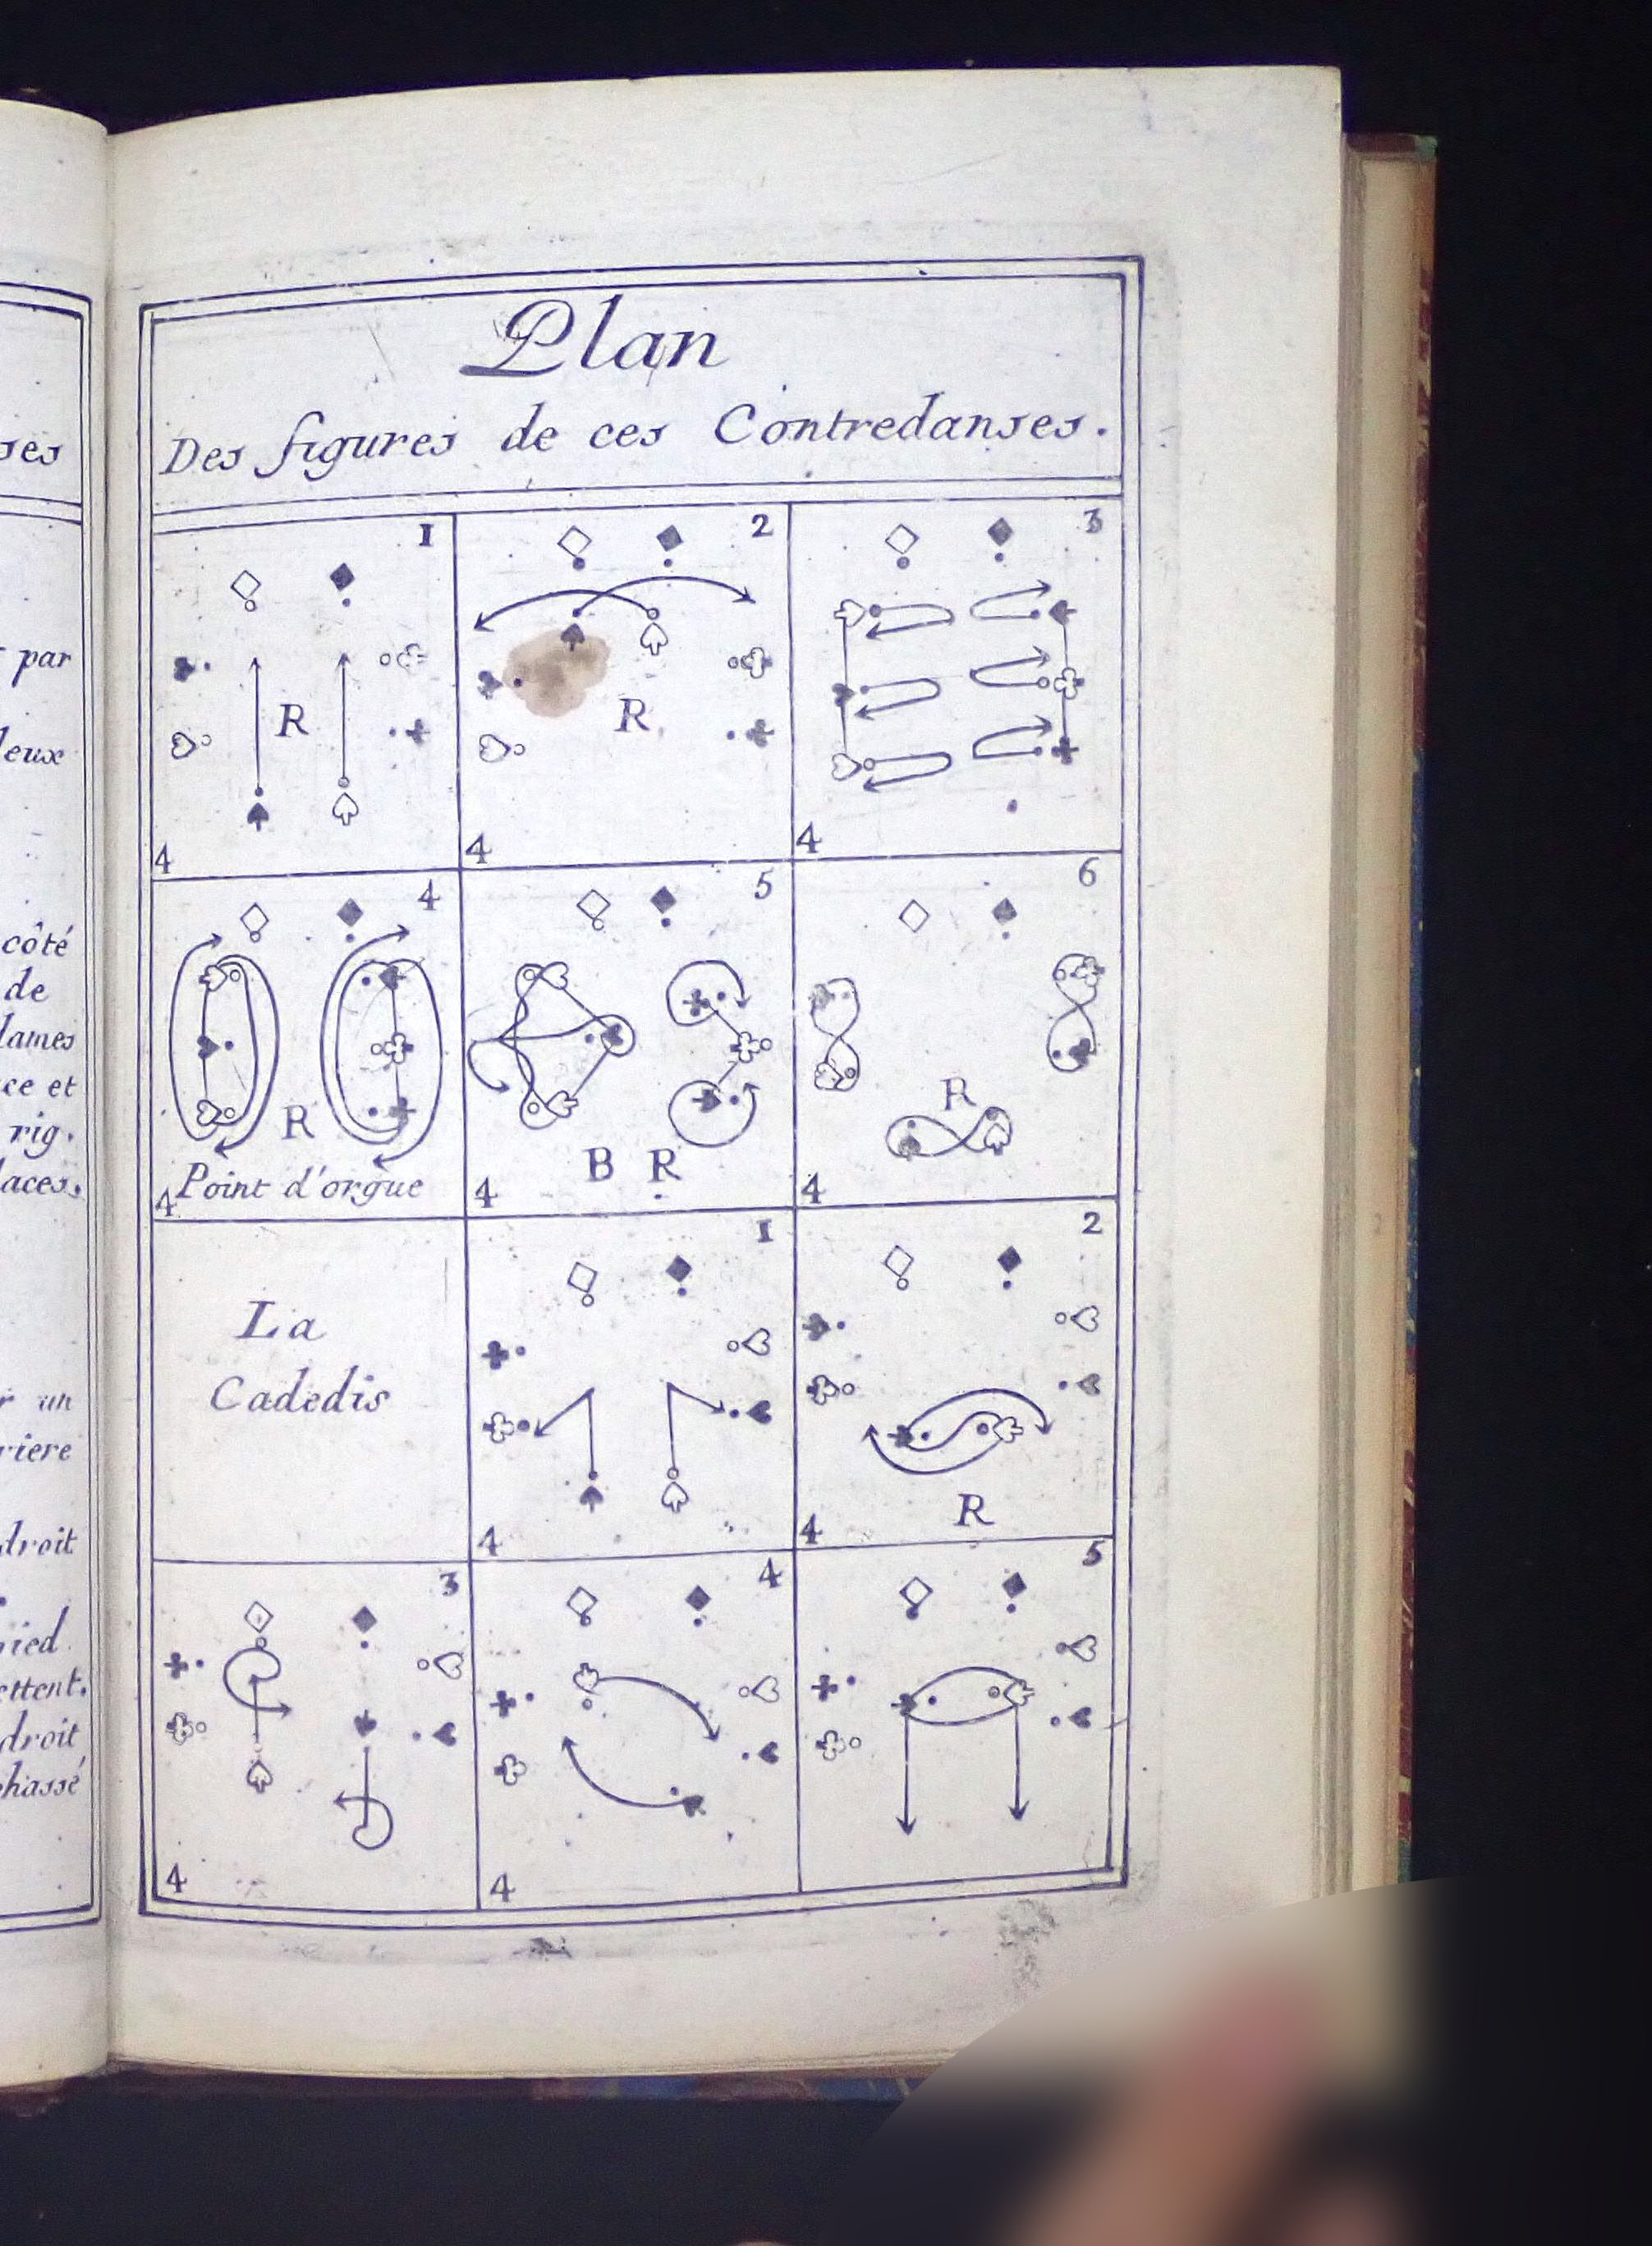 par
côté
de
lames
ce et
rig.
laces.
un
riere
droit
droit
Plan
Des figures de ces Contredanses.
1
R
4
2
R
4
3
4
4
R
4 Point d'orgue
5
B R
4
6
R
4
La
Cadedis
1
4
2
R
4
3
4
4
4
5